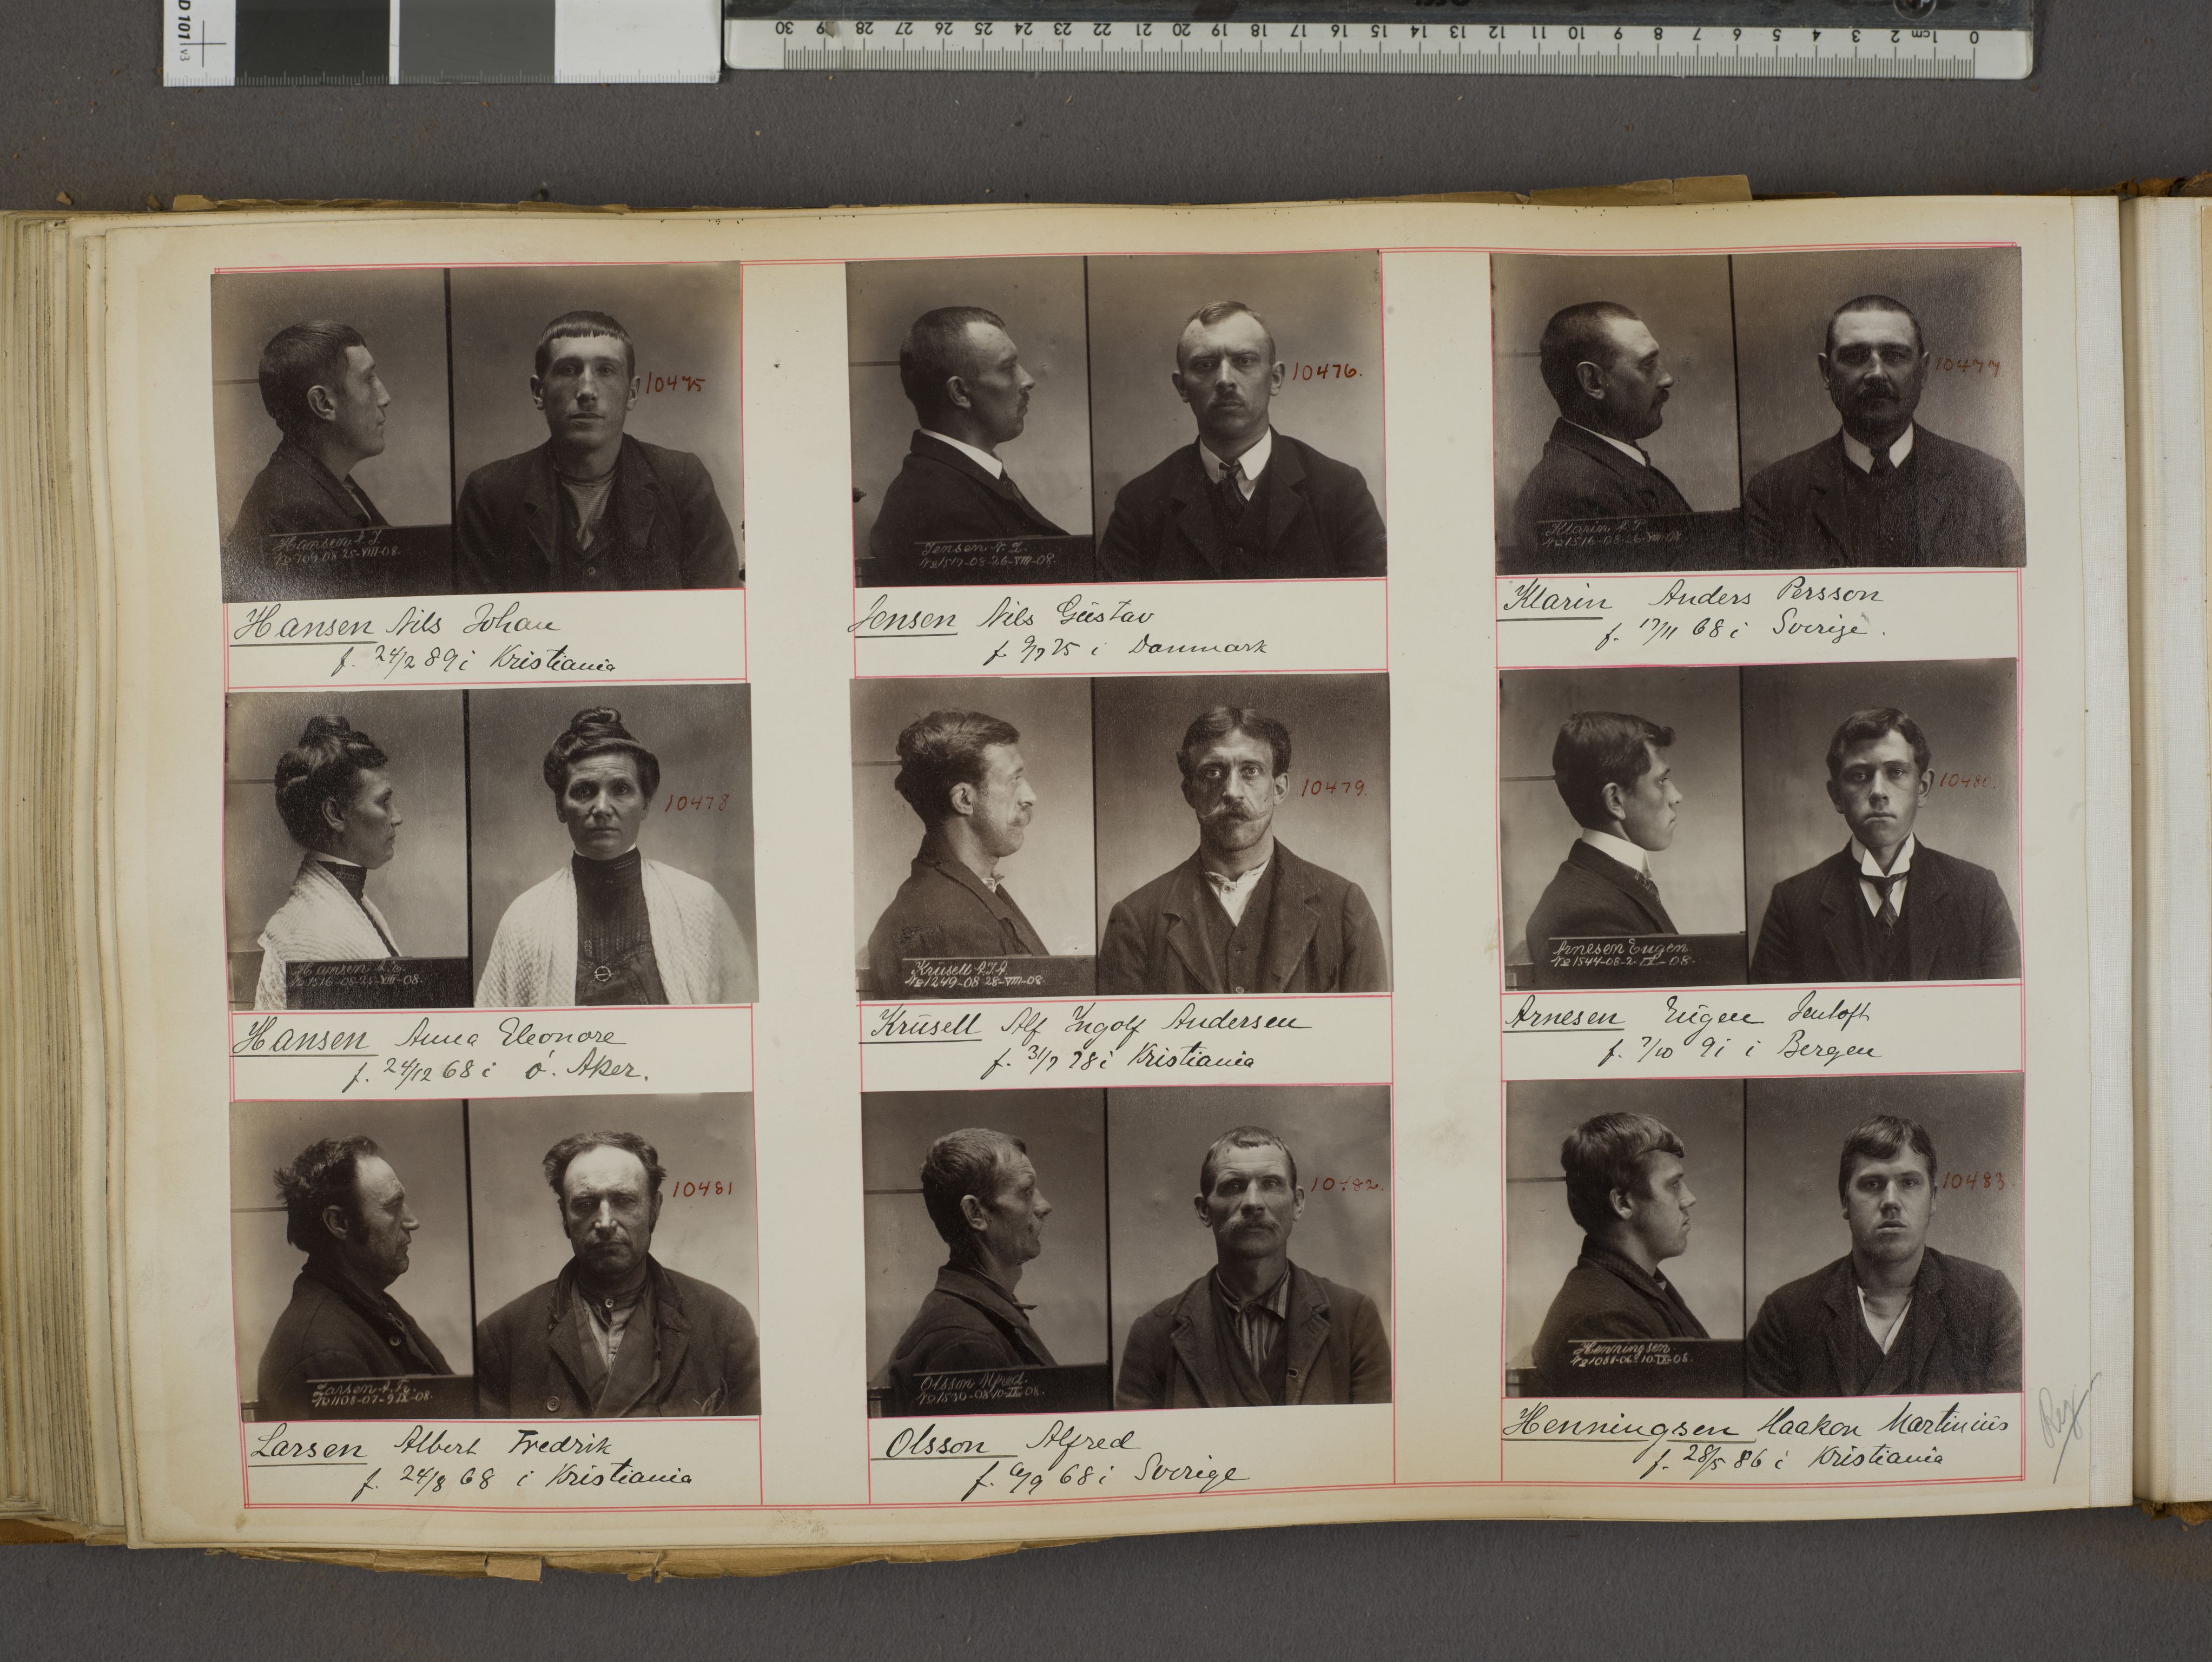 D 101 v3
0 1cm 2 3 4 5 6 7 8 9 10 11 12 13 14 15 16 17 18 19 20 21 22 23 24 25 26 27 28 29 30
10475
Hansen N. J.
No 709-08 25-VIII-08.
Hansen Nils Johan
f. 24/2 89 i Kristiania
10476.
Jensen N. G.
No 1517-08-26-VIII-08.
Jensen Nils Gustav
f. 9/7 75 i Danmark
10477
Klarin A. P.
No 1516-08-26-VIII-08
Klarin Anders Persson
f. 17/11 68 i Sverige.
10478
Hansen A. E.
No 1516-08-25-VIII-08.
Hansen Anna Eleonore
f. 24/12 68 i Ö. Aker.
10479.
Krüsell A. I. A
No 1249-08 28-VIII-08.
Krüsell Alf Ingolf Andersen
f. 31/7 78 i Kristiania
10480.
Arnesen Eugen.
No 1544-08-2-IX-08.
Arnesen Eugen Jentoft
f. 7/10 91 i Bergen
10481
Larsen A. Fr.
No 1108-07-9 IX-08.
Larsen Albert Fredrik
f. 24/8 68 i Kristiania
10482.
Olsson Alfred.
No 1530-08 10-IX-08.
Olsson Alfred
f. 6/9 68 i Sverige
10483.
Henningsen
No 1081-06-10-IX-08.
Henningsen Haakon Martinius
f. 28/5 86 i Kristiania